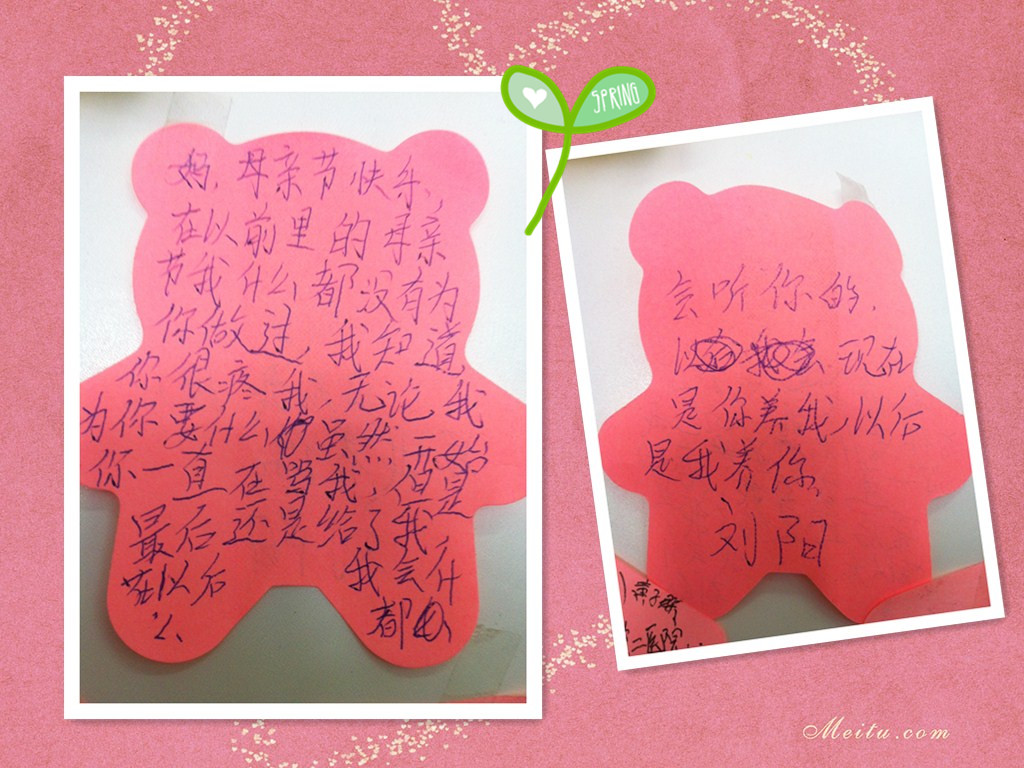 妈,母亲节快乐,
在以前里的母亲
节我什么都没有为
你做过,我知道
你很疼我,无论我
为你要什么,虽然
你一直在
最后还是给了我,
在以后我会什
么都
SPRING
会听你的,
以 现在
是你养我,以后
是我养你,
刘阳
Meitu.com